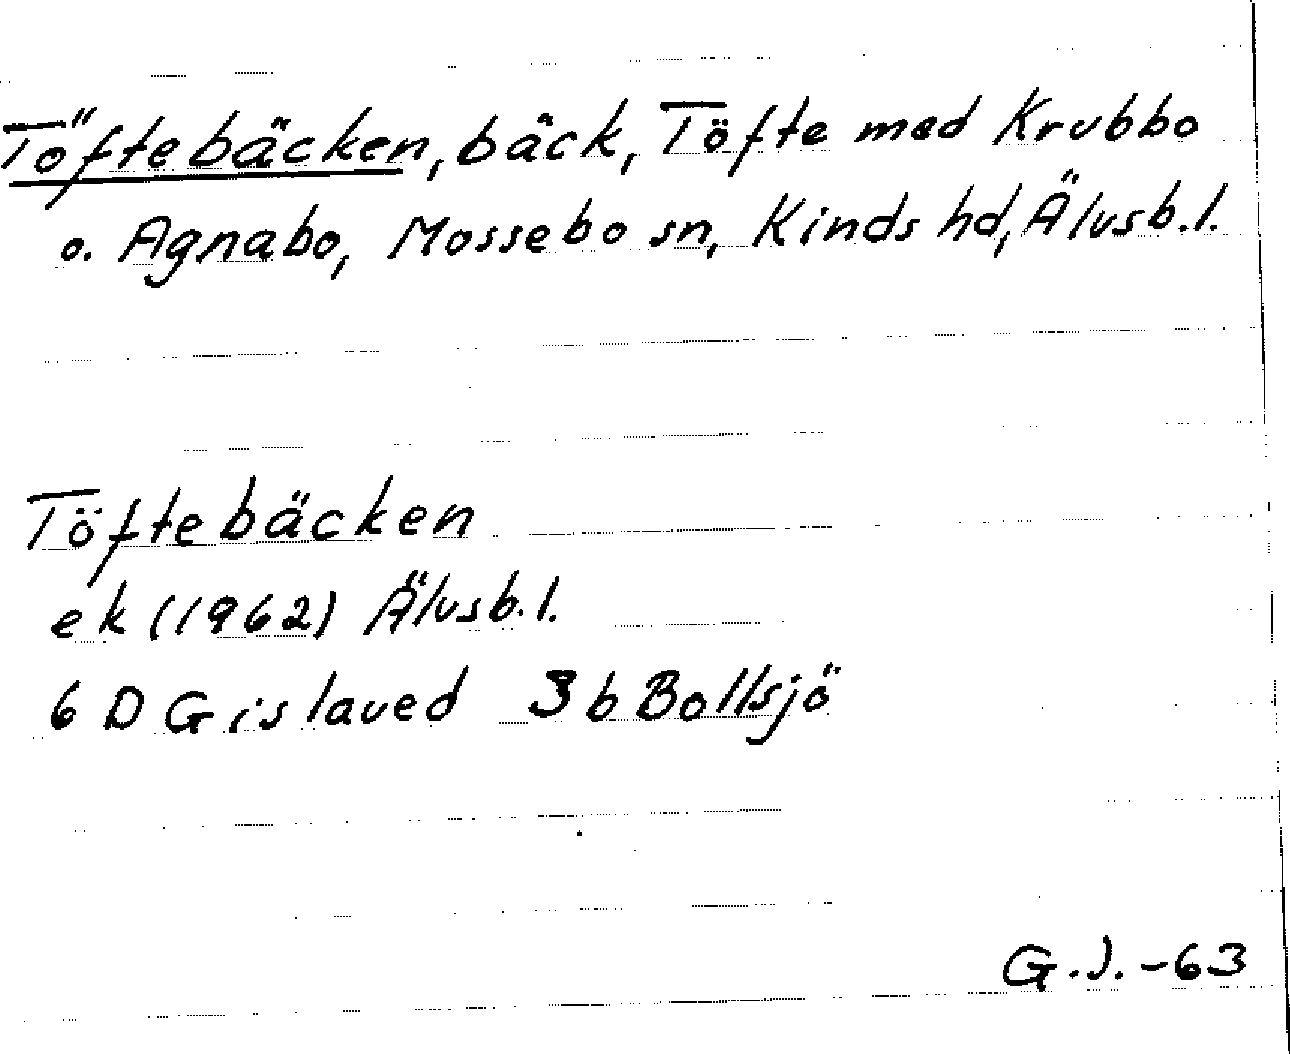 Töftebäcken, bäck, Töfte med Krubbo
o. Agnabo, Mossebo sn, Kinds hd, Älvsb.l.
Töftebäcken
ek (1962) Älvsb.l.
6 D Gislaved 3 b Bollsjö
G.J. -63